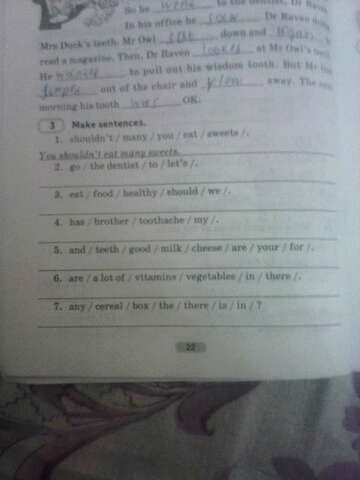 So he went to the dentist, Dr Raven
In his office he saw Dr Raven doing
Mrs Duck's teeth. Mr Owl sat down and
read a magazine. Then, Dr Raven looked at Mr Owl's
He wanted to pull out his wisdom tooth. But Mr
out of the chair and away. The
morning his tooth was OK.
3 Make sentences.
1. shouldn't / many / you / eat / sweets /.
You shouldn't eat many sweets.
2. go / the dentist / to / let's /.
3. eat / food / healthy / should / we /.
4. has / brother / toothache / my /.
5. and / teeth / good / milk / cheese / are / your / for /.
6. are / a lot of / vitamins / vegetables / in / there /.
7. any / cereal / box / the / there / is / in / ?
22